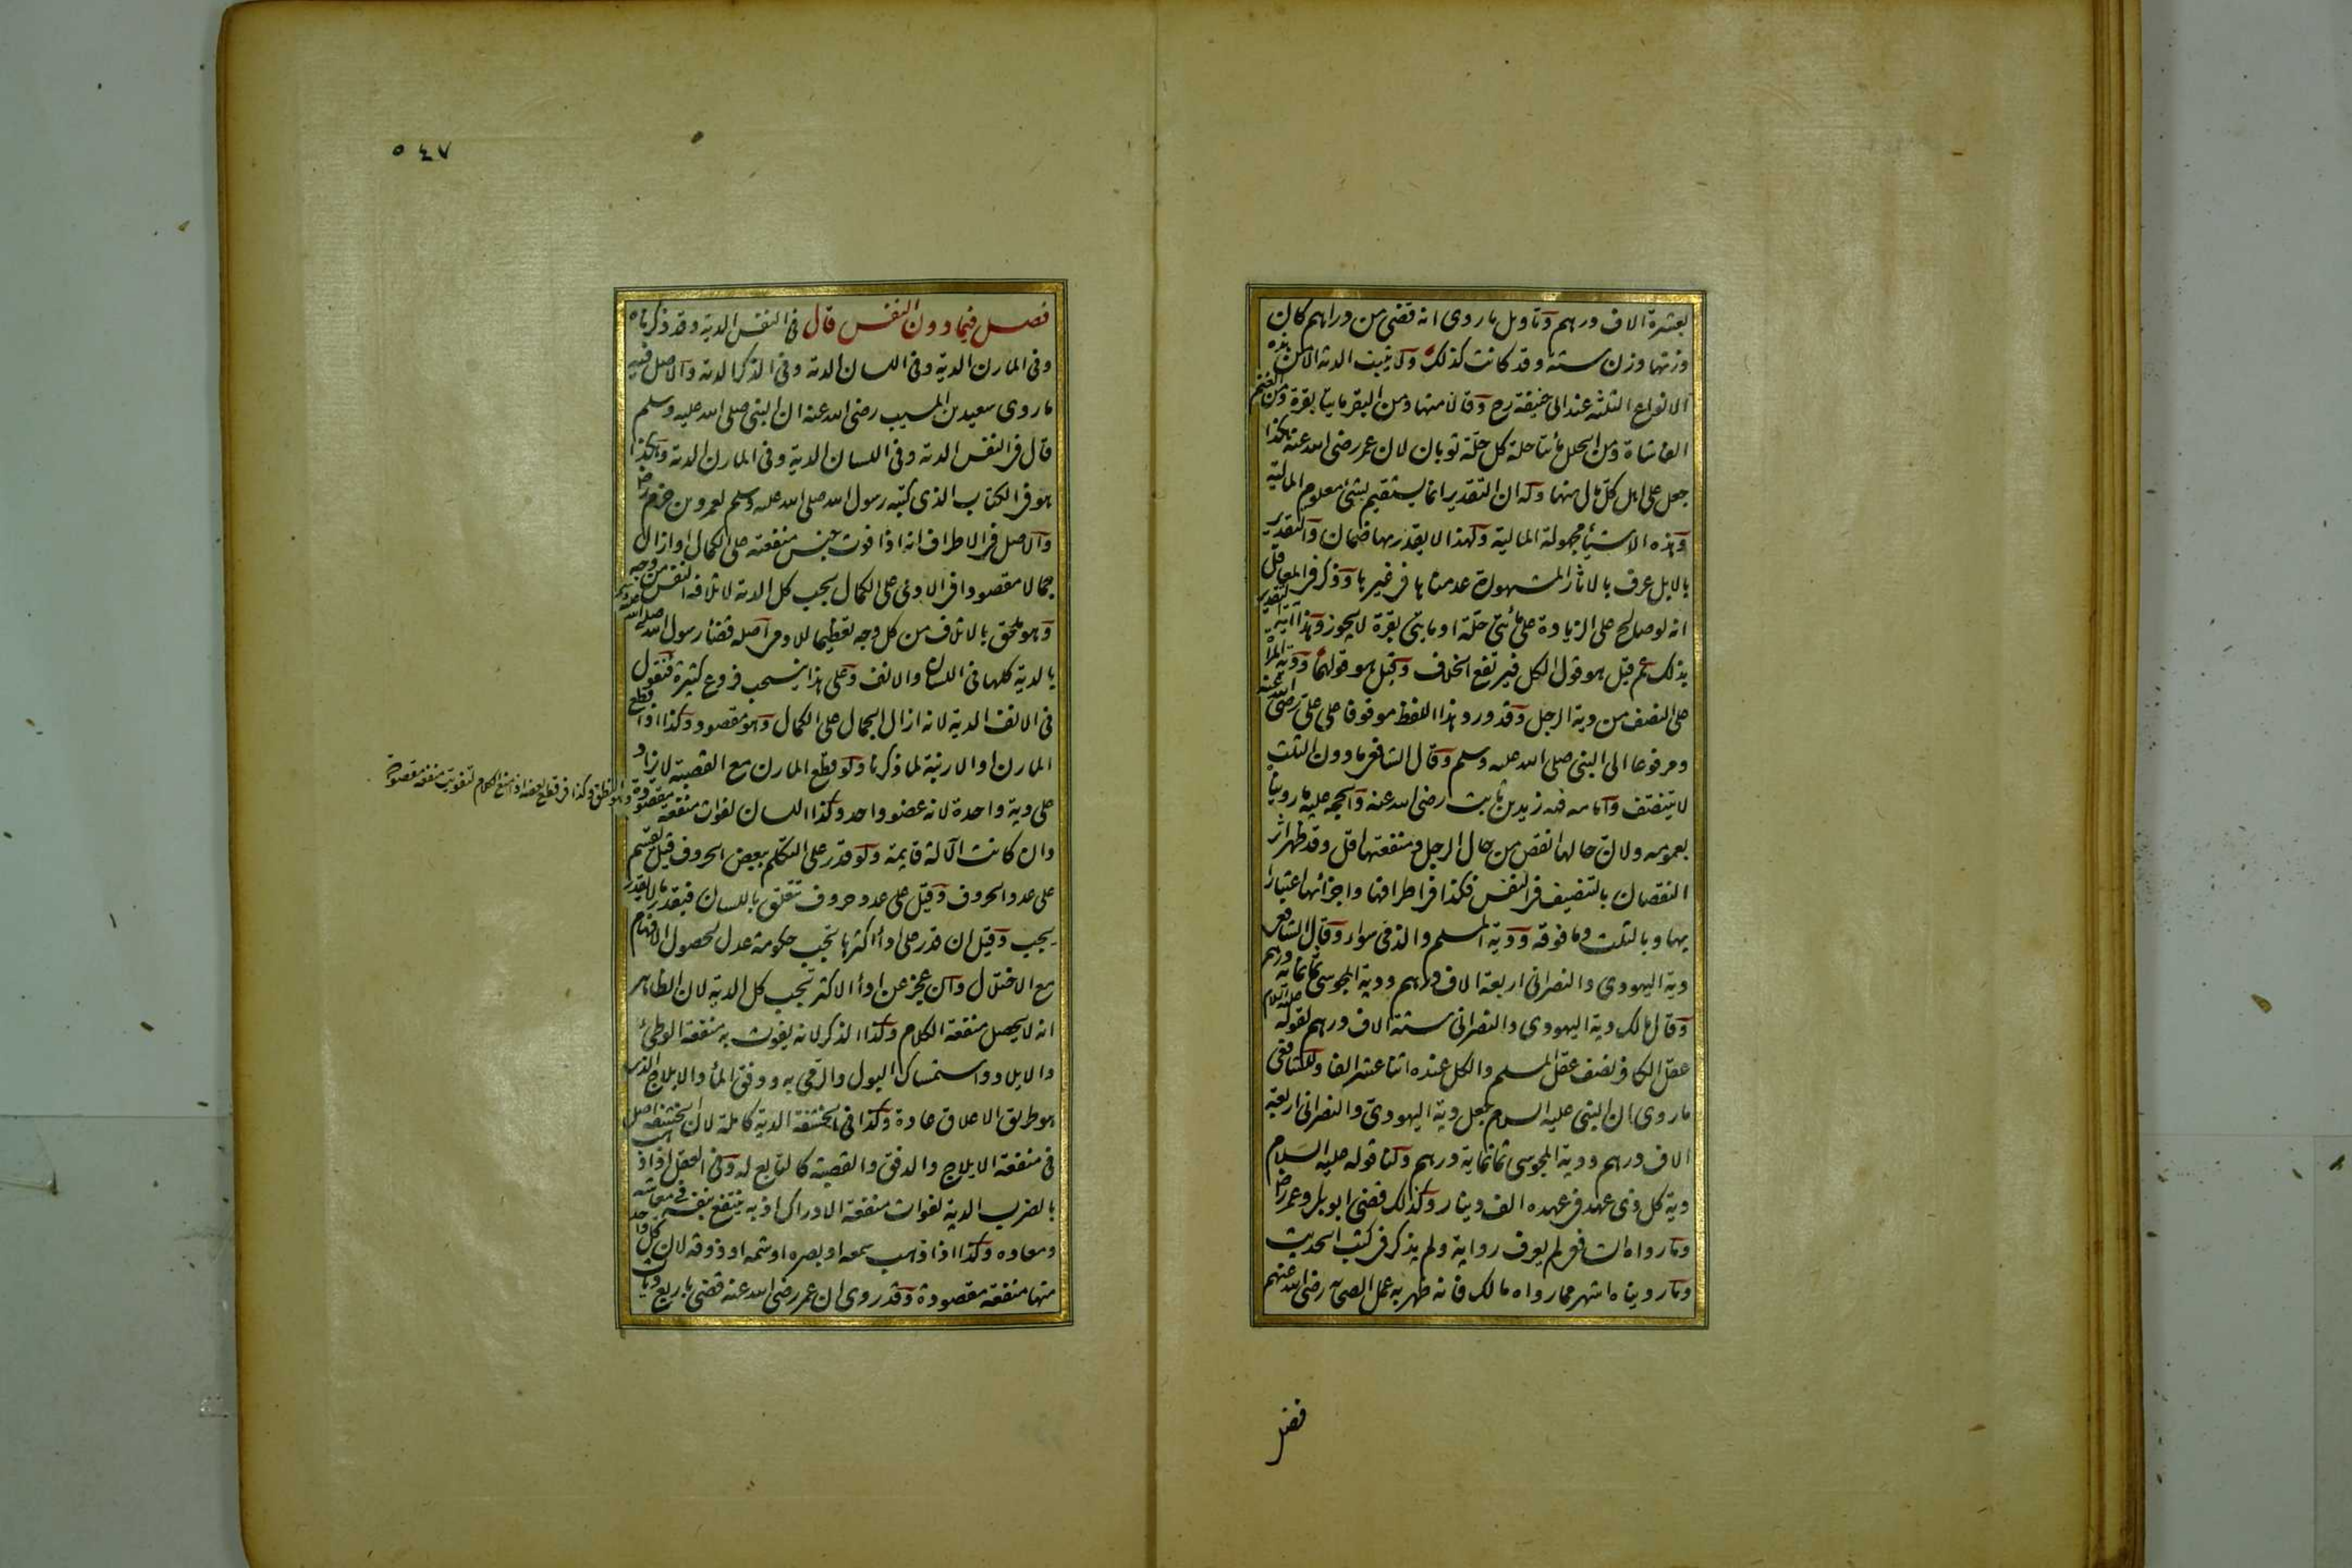 بعشرة الاف درهم وتاويل ما روى انه قضى من دراهم كان
وزنها وزن ستة وقد كانت كذلك ولا يثبت الدية الا من هذه
الانواع الثلثة عند ابى حنيفة رح وقالا منها ومن البقر مايتا بقرة ومن الغنم
الفا شاة ومن الحلل مأتا حلة كل حلة ثوبان لان عمر رضى الله عنه هكذا
جعل على اهل كل مال منها وله ان التقدير انما يستقيم بشئ معلوم المالية
وهذه الاشيأ مجهولة المالية ولهذا لا يقدر بها ضمان والتقدير
بالابل عرف بالاثار المشهورة عدمناها فى غيرها وذكر فى المعاقل
انه لو صالح على الزيادة على مأتى حلة او مايتى بقرة لا يجوز وهذا آية التقدير
بذلك ثم قيل هو قول الكل فيرتفع الخلاف وقيل هو قولهما ودية المرأة
على النصف من دية الرجل وقد ورد هذا اللفظ موقوفا على على رضى الله عنه
ومرفوعا الى النبى صلى الله عليه وسلم وقال الشافعى ما دون الثلث
لا يتنصف وامامه فيه زيد بن ثابت رضى الله عنه والحجة عليه ما روينا
بعمومه ولان حالها انقص من حال الرجل ومنفعتها اقل وقد ظهر اثر
النقصان بالتنصيف فى النفس فكذا فى اطرافها واجزائها اعتبارا
بها وبالثلث وما فوقه ودية المسلم والذمى سواء وقال الشافعى
دية اليهودى والنصرانى اربعة الاف درهم ودية المجوسى ثمانماية درهم
وقال مالك دية اليهودى والنصرانى ستة الاف درهم لقوله عليه السلام
عقل الكافر نصف عقل المسلم والكل عنده اثنا عشر الفا وللشافعى
ما روى ان النبى عليه السلام جعل دية اليهودى والنصرانى اربعة
الاف درهم ودية المجوسى ثمانماية درهم ولنا قوله عليه السلام
دية كل ذى عهد فى عهده الف دينار وكذلك قضى ابو بكر وعمر رضى
وما رواه الشافعى لم يعرف رواية ولم يذكر فى كتب الحديث
وما رويناه اشهر مما رواه مالك فانه ظهر به عمل الصحابة رضى الله عنهم
فصل
٥٤٧
فصل فيما دون النفس قال فى النفس الدية وقد ذكرناه
وفى المارن الدية وفى اللسان الدية وفى الذكر الدية والاصل فيه
ما روى سعيد بن المسيب رضى الله عنه ان النبى صلى الله عليه وسلم
قال فى النفس الدية وفى اللسان الدية وفى المارن الدية وهكذا
هو فى الكتاب الذى كتبه رسول الله صلى الله عليه وسلم لعمرو بن حزم رضى
والاصل فى الاطراف انه اذا فوت جنس منفعته على الكمال او ازال
جمالا مقصودا فى الادمى على الكمال يجب كل الدية لاتلافه النفس من وجه
وهو ملحق بالاتلاف من كل وجه تعظيما للادمى اصله قضأ رسول الله صلى الله عليه وسلم
بالدية كلها فى اللسان والانف وعلى هذا ينسحب فروع كثيرة فنقول
فى الانف الدية لانه ازال الجمال على الكمال وهو مقصود وكذا اذا قطع
المارن او الارنبة لما ذكرنا ولو قطع المارن مع القصبة لا يزاد
على دية واحدة لانه عضو واحد وكذا اللسان لفوات منفعة مقصودة
وهو النطق وكذا فى قطع بعضه اذا منع الكلام لتفويت منفعة مقصودة
وان كانت الآلة قايمة ولو قدر على التكلم ببعض الحروف قيل تقسم
على عدد الحروف وقيل على عدد حروف تتعلق باللسان فبقدر ما لا يقدر
يجب وقيل ان قدر على ادأ اكثرها تجب حكومة عدل لحصول الافهام
مع الاختلال وان عجز عن ادأ الاكثر تجب كل الدية لان الظاهر
انه لا يحصل منفعة الكلام وكذا الذكر لانه يفوت به منفعة الوطئ
والايلاد واستمساك البول والرمى به ودفق المأ والايلاج الذى
هو طريق الاعلاق عادة وكذا فى الحشفة الدية كاملة لان الحشفة اصل
فى منفعة الايلاج والدفق والقصبة كالتابع له وفى العقل اذا ذهب
بالضرب الدية لفوات منفعة الادراك اذ به ينتفع بنفسه فى معاشه
ومعاده وكذا اذا ذهب سمعه او بصره او شمه او ذوقه لان كل واحد
منها منفعة مقصودة وقد روى ان عمر رضى الله عنه قضى باربع ديات